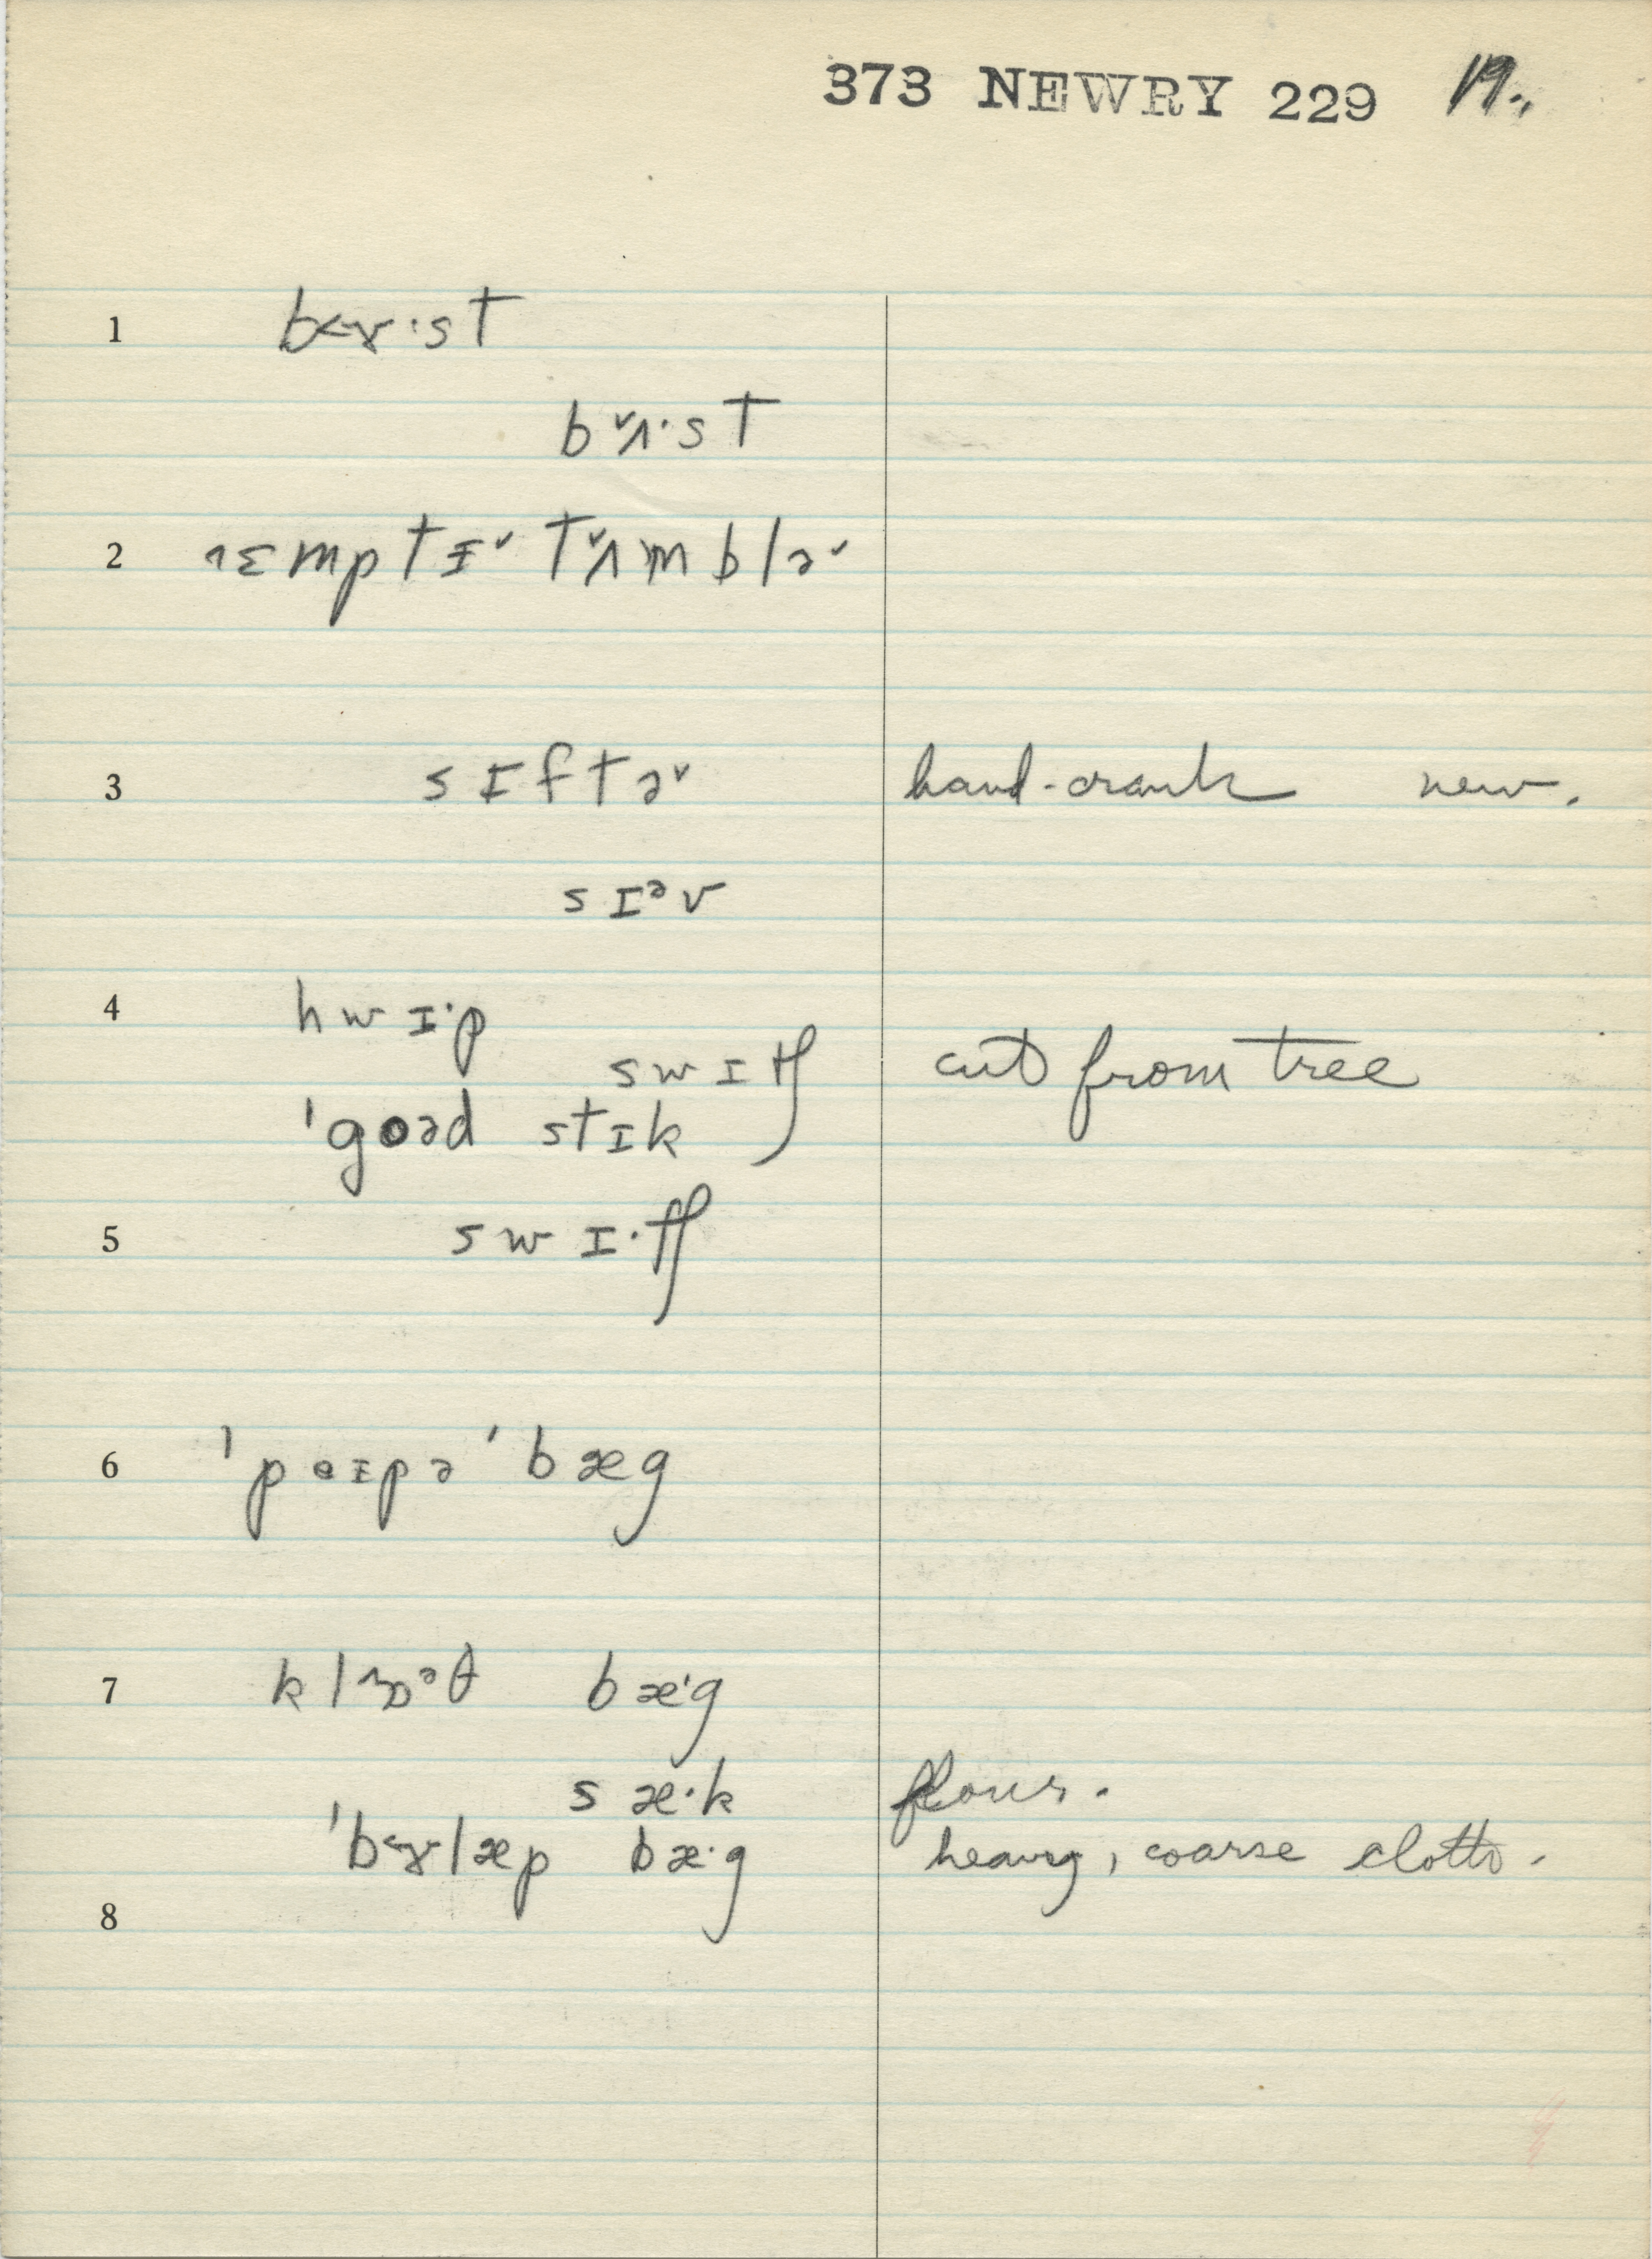 373 NEWRY 229 19.
1 b˂ɤ·sT
b˅ʌ·sT
2 ˄ɛmptɪ˅ t˅ʌmblə˅
3 sɪftə˅ hand-crank new.
sɪᵊv
4 hwɪ·p
swɪtʃ cut from tree
'goəd stɪk
5 swɪ·tʃ
6 'peɪpə 'bæg
7 klɒᵊθ bæ·g
sæ·k flour.
'b˂ɤlæp bæ·g heavy, coarse cloth.
8